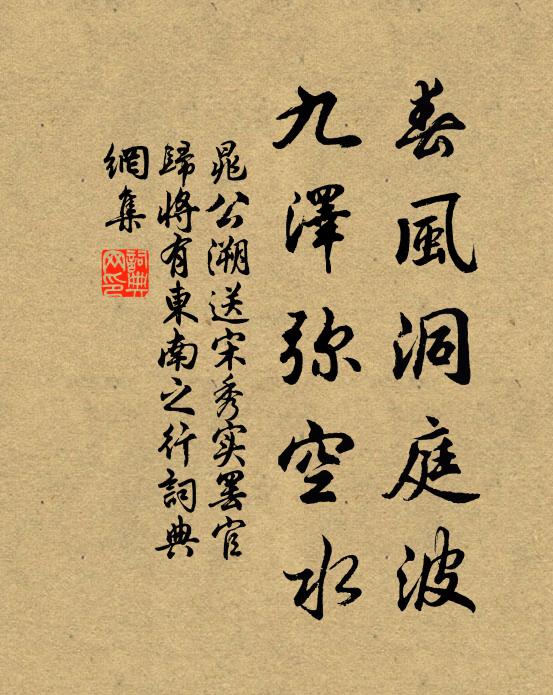 春風洞庭波
九澤弥空水
晁公溯送宋秀实罢官
歸將有東南之行詞典
網集
詞典网印